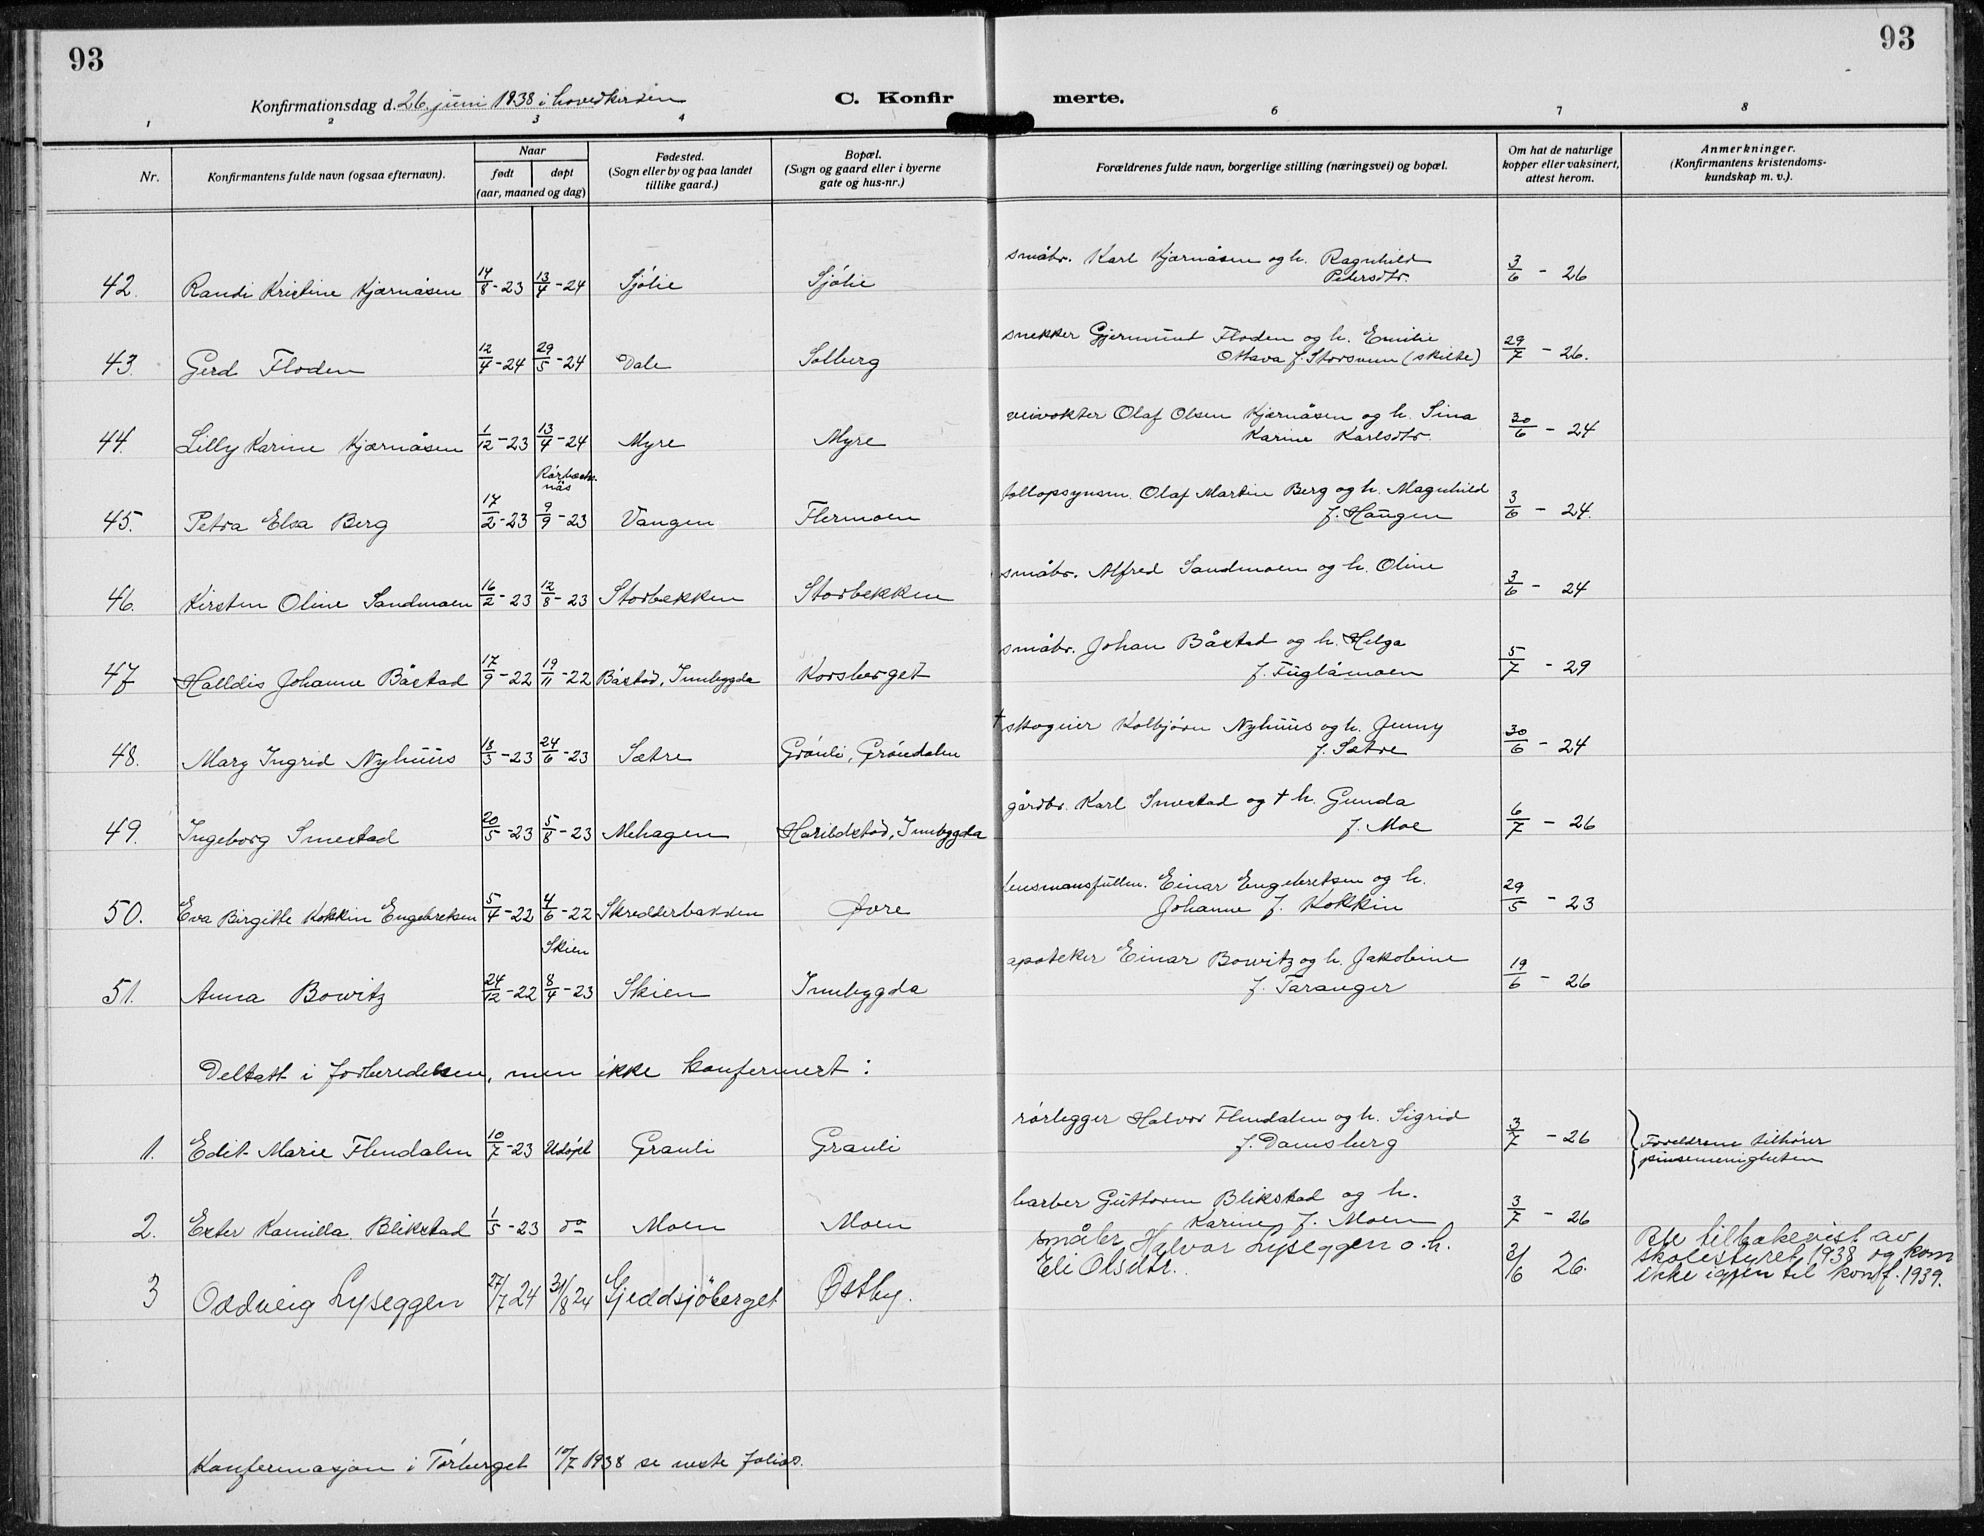 93
93
Konfirmationsdag d. 26. juni 1938 i hovedkirken
C. Konfir
merte.
1 2 3 4 6 7 8
Nr.
Konfirmantens fulde navn (ogsaa efternavn).
Naar
født
døpt
(aar, maaned og dag)
Fødested.
(Sogn eller by og paa landet
tillike gaard.)
Bopæl.
(Sogn og gaard eller i byerne
gate og hus-nr.)
Forældrenes fulde navn, borgerlige stilling (næringsvei) og bopæl.
Om hat de naturlige
kopper eller vaksinert,
attest herom.
Anmerkninger.
(Konfirmantens kristendoms-
kundskap m. v.).
småbr. Karl Kjærnåsen og h. Ragnhild
Pedersdtr.
42. Randi Kristine Kjærnåsen 14/8-23 13/4-24 Sjólie Sjólie 3/6 - 26
snekker Gjermund Floden og h. Emilie
Ottava f. Storsveen (skilte)
43. Gerd Floden 12/4-24 29/5-24 Dale Solberg 29/7 - 26.
veivokter Olaf Olsen Kjærnåsen og h. Sina
Karine Karlsdtr.
44. Lilly Karine Kjærnåsen 1/12-23 13/4-24 Myre Myre 30/6 - 24
tollopsynsm. Olaf Martin Berg og h. Magnhild
f. Haugen
45. Petra Elsa Berg 17/2-23 9/9-23 Vangen Flermoen 3/6 - 24.
småbr. Alfred Sandmoen og h. Oline
46. Kirsten Oline Sandmoen 16/2-23 12/8-23 Storbekken Storbekken 3/6 - 24
småbr. Johan Båstad og h. Helga
f. Fuglåmoen
47 Halldis Johanne Båstad 17/9-22 19/11-22 Båstad, Innbygda Korsberget 5/7 - 29
† skogeier Kolbjørn Nyhuus og h. Jenny
f. Sætre
48. Mary Ingrid Nyhuus 18/3-23 24/6-23 Sætre Grónli, Gróndalen 30/6 - 24
gårdbr. Karl Smestad og † h. Gunda
f. Moe
49. Ingeborg Smestad 20/5-23 5/8-23 Mehagen Harildstad, Innbygda 6/7 - 26
lensmansfullm. Einar Engebretsen og h.
Johanne f. Kokkin
50. Eva Birgitte Kokkin Engebretsen 5/4-22 4/6-22 Skredderbakken Øvre 29/5 - 23
Skien
apoteker Einar Bowitz og h. Jakobine
f. Taranger
51. Anna Bowitz 24/12-22 8/4-23 Skien Innbygda 19/6 - 26
Deltatt i forberedelsen, men ikke konfermert:
rórlegger Halvor Flendalen og h. Sigrid
f. Damsberg
1. Edit Marie Flendalen 10/7-23 Udópt Granli Granli 3/7 - 26 Foreldrene tilhórer
pinsemenigheten
barber Guttorm Blikstad og h.
Karine f. Moen
2. Ester Kamilla Blikstad 1/5-23 do Moen Moen 3/7 - 26
småbr Halvor Lyseggen o. h.
Eli Olsdtr.
3 Oddveig Lyseggen 27/7 24 31/8 24 Gjeddsjöberget Østby. 3/6 26. Ble tilbakevist av
skolestyret 1938 og kom
ikke igjen til konf. 1939.
Konfermasjon i Tórberget 10/7 1938 se neste folio.